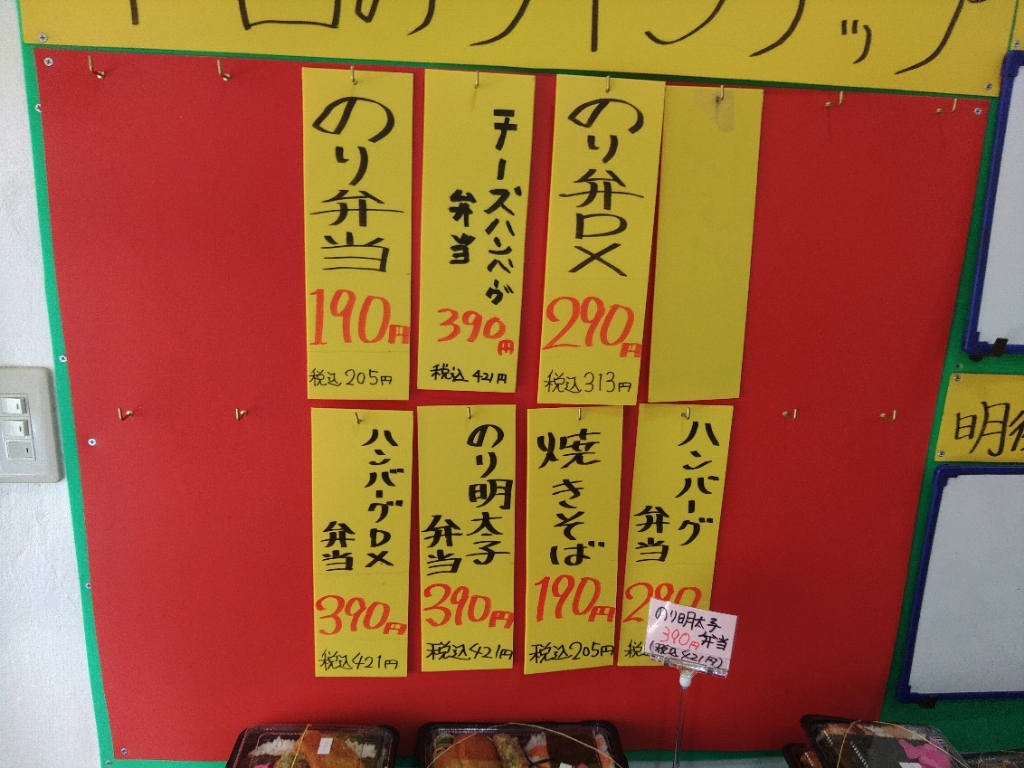 のラインナップ
のり弁当
190円
税込205円
チーズハンバーグ
弁当
390円
税込421円
のり弁DX
290円
税込313円
ハンバーグDX
弁当
390円
税込421円
のり明太子
弁当
390円
税込421円
焼きそば
190円
税込205円
ハンバーグ
弁当
290
税
のり明太子
390円弁当
(税込421円)
明